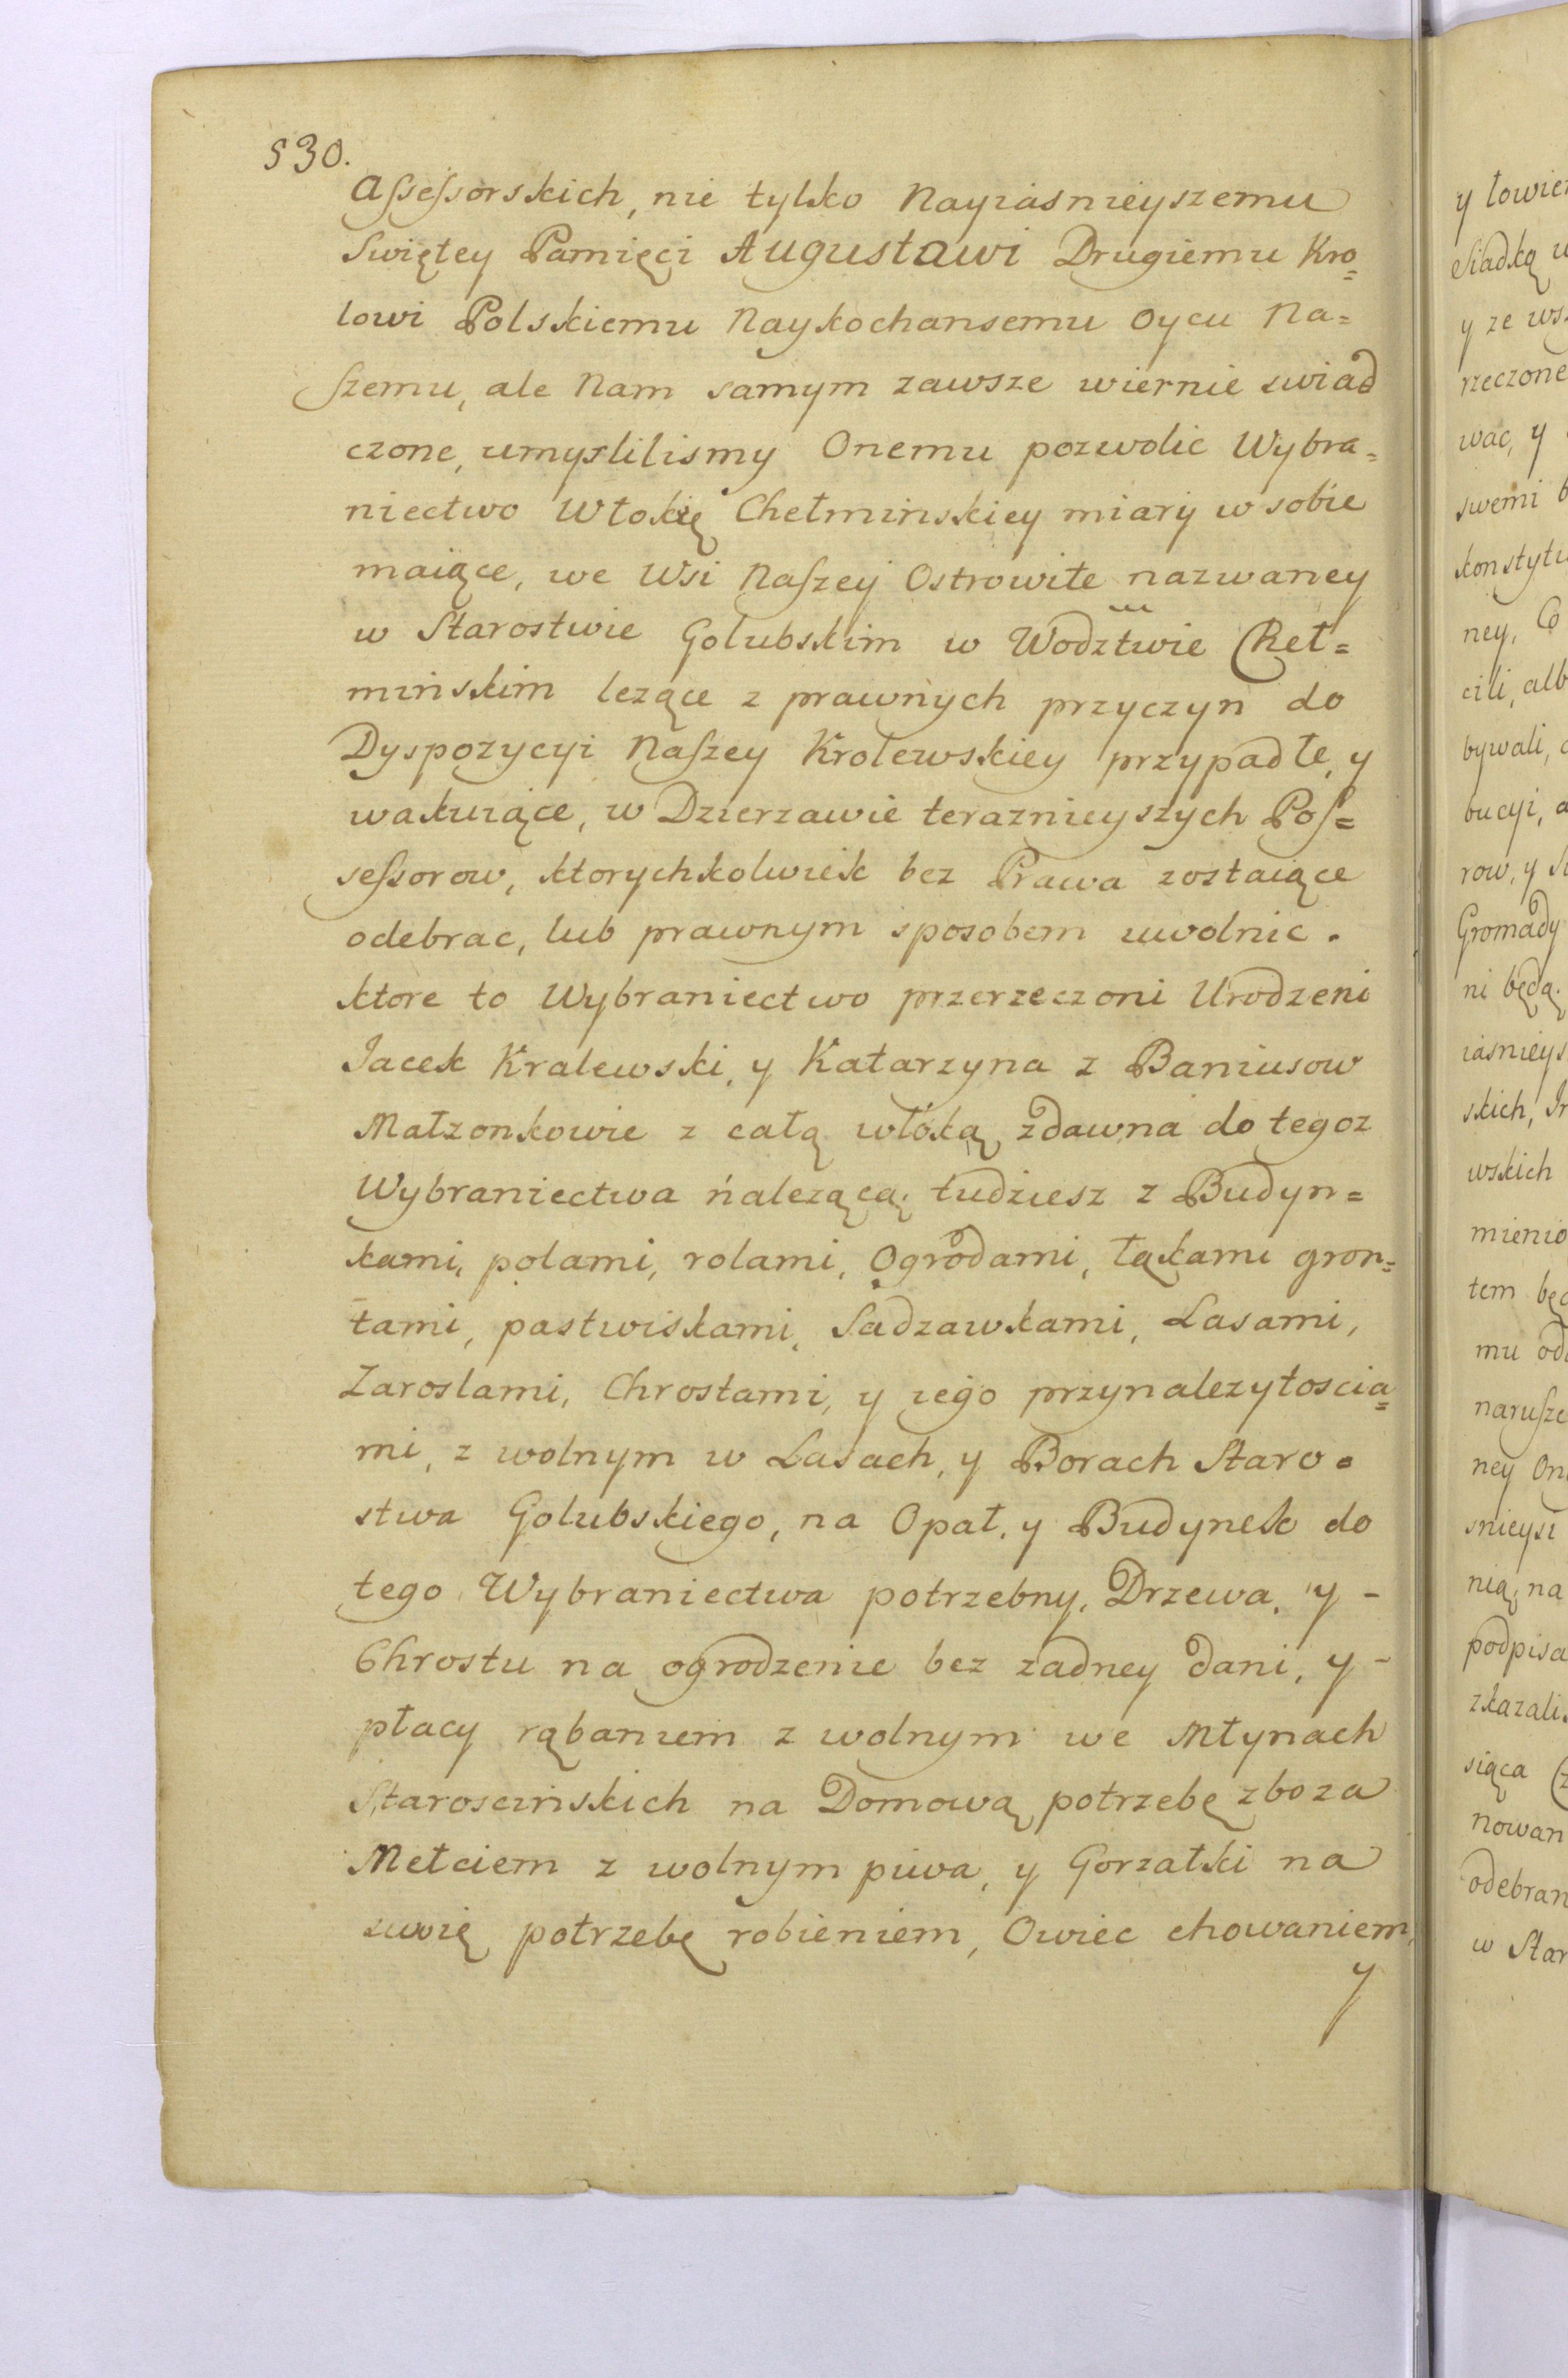 530.
Assessorskich, nie tylko Nayiasnieyszemu
Swiętey Pamięci Augustawi Drugiemu Kro=
lowi Polskiemu Naykochansemu Oycu Na=
szemu, ale Nam samym zawsze wiernie swiad
czone, umyslilismy Onemu pozwolic Wybra=
niectwo Włokę Chełminskiey miary w sobie
maiące, we Wsi Naszey Ostrowite nazwaney
w Starostwie Golubskim w Wodztwie Cheł=
minskim lezące z prawnych przyczyn do
Dyspozycyi Naszey Krolewskiey przypadłe, y
wakuiące, w Dzierzawie teraznieyszych Pos=
sessorow, ktorychkolwiek bez Prawa zostaiące
odebrac, lub prawnym sposobem uwolnic.
ktore to Wybraniectwo przerzeczoni Urodzeni
Jacek Kralewski, y Katarzyna z Baniusow
Małzonkowie z całą włoką zdawna do tegoz
Wybraniectwa nalezącą, tudziesz z Budyn=
kami, polami, rolami, Ogrodami, łąkami gron=
tami, pastwiskami, Sadzawkami, Lasami,
Zaroslami, Chrostami, y iego przynalezytoscia=
mi, z wolnym w Lasach, y Borach Staro=
stwa Golubskiego, na Opał, y Budynek do
tego Wybraniectwa potrzebny, Drzewa, y -
Chrostu na ogrodzenie bez zadney dani, y -
płacy rąbaniem z wolnym we Młynach
Staroscinskich na Domową potrzebę zboza
Mełciem z wolnym piwa, y Gorzałki na
swoię potrzebę robieniem, Owiec chowaniem,
y
y łowie
Siadką
y ze ws
rzeczone
wac, y
swemi b
konstytu
ney, Co
cili, alb
bywali,
bucyi, a
row, y
Gromady
ni będą.
iasnieys
skich,
wskich
mienio
tem bę
mu od
narusze
ney On
snieysz
nią, na
podpisa
zkazali
siąca
nowan
odebran
w Star